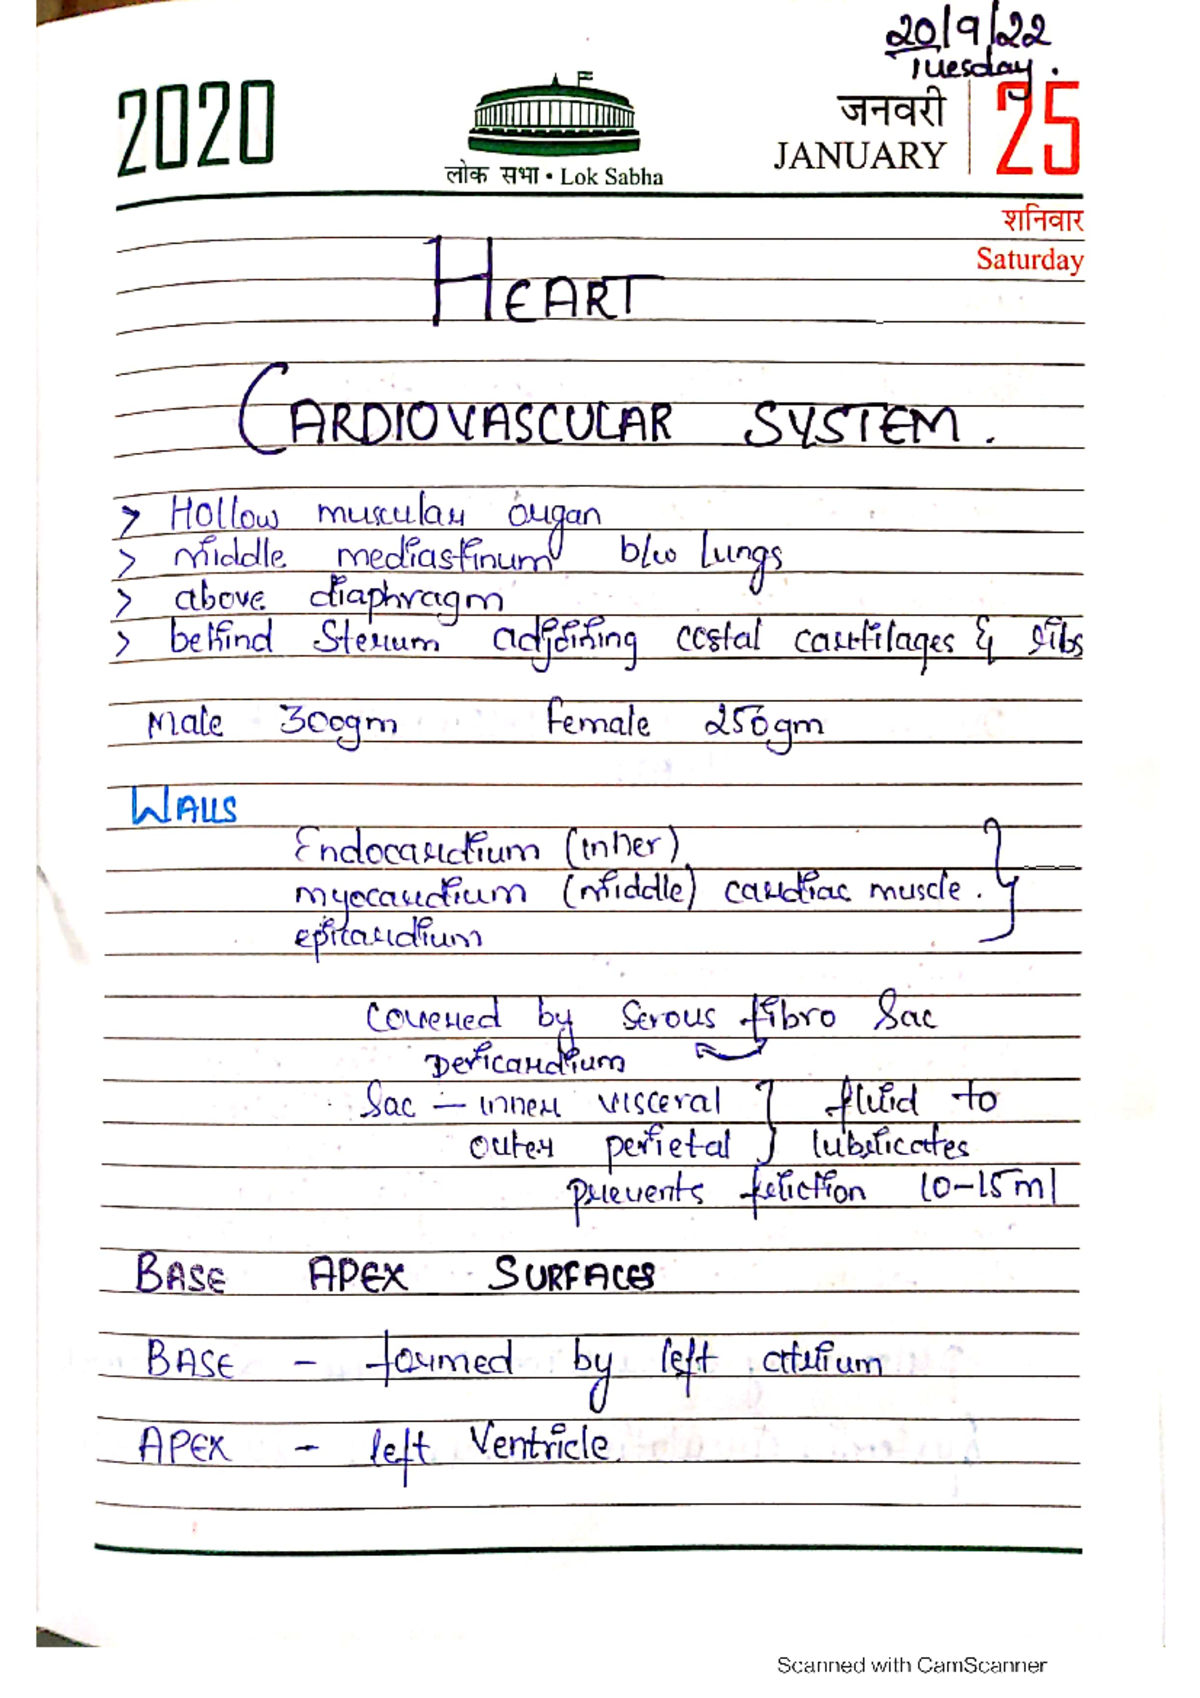 20/9/22
Tuesday.
2020
लोक सभा • Lok Sabha
जनवरी
JANUARY
25
शनिवार
Saturday
HEART
CARDIOVASCULAR SYSTEM.
> Hollow muscular organ
> middle mediastinum b/w lungs
> above diaphragm
> behind Sterum adjoining costal cartilages & ribs
Male 300gm Female 250gm
WALLS
Endocardium (inner)
myocardium (middle) cardiac muscle.
epicardium
Covered by Serous fibro Sac
Pericardium
Sac – inner visceral } fluid to
outer perietal } lubricates
prevents friction 10-15 ml
BASE APEX SURFACES
BASE – formed by left atrium
APEX – left Ventricle.
Scanned with CamScanner